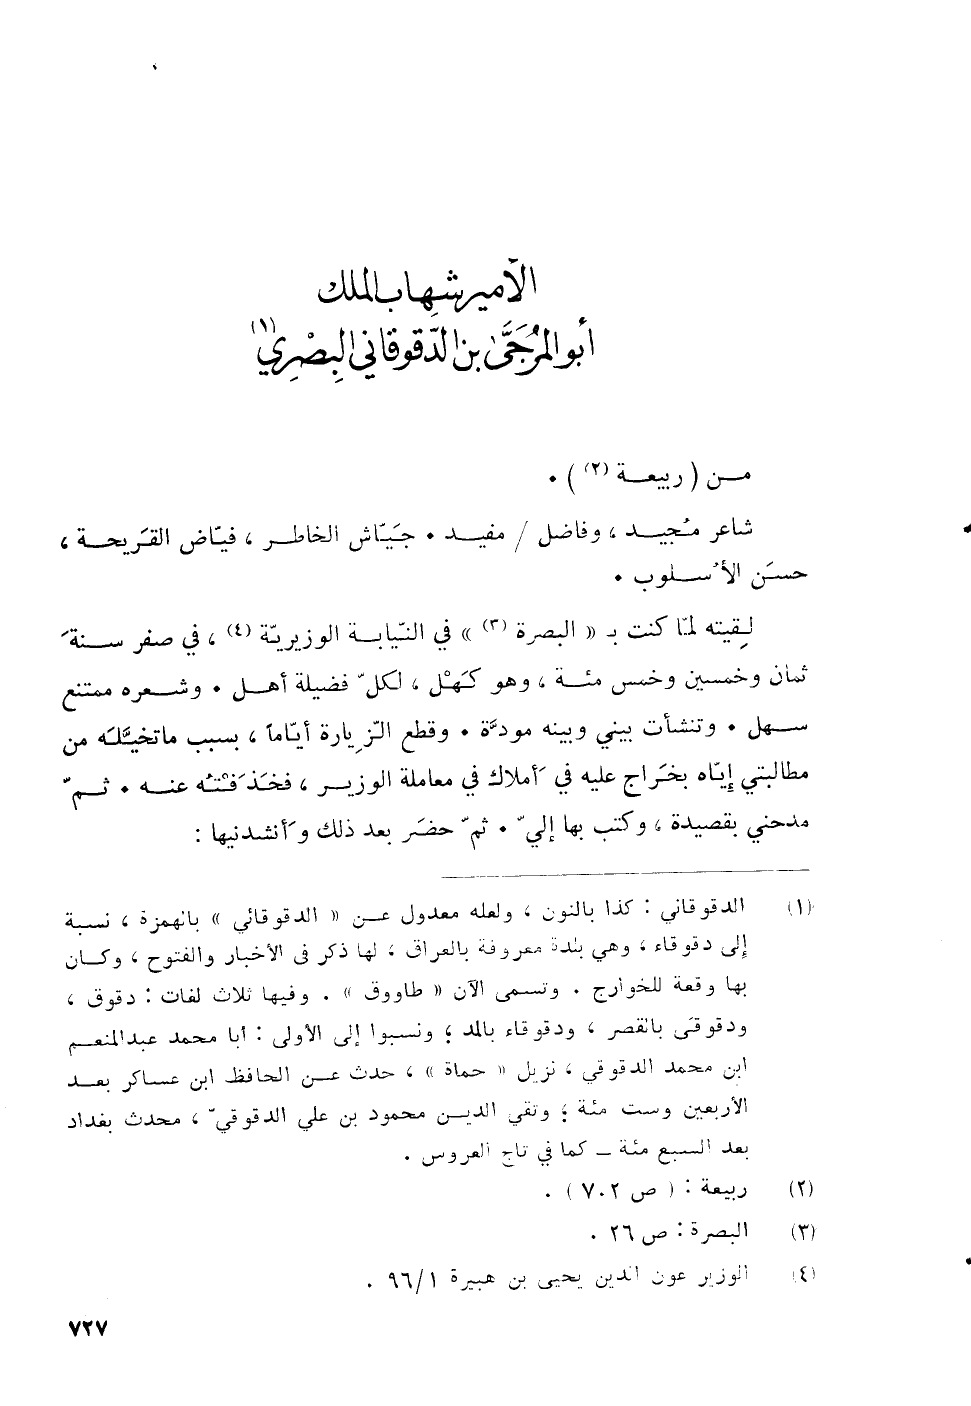 الأمير شهاب الملك
أبو المُرَجَّىٰ بن الدّقوقاني البِصْرِي (١)
مـن ( ربيعـة (٢) ) .
شاعر مُجيـد ، وفاضل / مفيـد . جَيّاش الخاطـر ، فيّاض القَريحـة ،
حسَن الأُسـلوب .
لقِيته لمّا كنت بـ « البصرة (٣) » في النّيابـة الوزيريّة (٤) ، في صفر سـنةَ
ثمان وخمسين وخمس مئـة ، وهو كَهْل ، لكلّ فضيلة أهـل . وشـعره ممتنع
سـهل . وتنشأت بيني وبينه مودَّة . وقطع الزِّيارة أيّاماً ، بسبب ماتخيَّلَه من
مطالبتي إيّاه بخَراج عليه في أملاك في معاملة الوزيـر ، فخَذَفْتُه عنـه . ثـمّ
مدحني بقصيدة ، وكتب بها إليّ . ثمّ حضَر بعد ذلك وأنشدنيها :
(١) الدقوقاني : كذا بالنون ، ولعله معدول عـن « الدقوقائي » بالهمزة ، نسبة
إلى دقوقاء ، وهي بلدة معروفة بالعراق ، لها ذكر فى الأخبار والفتوح ، وكـان
بها وقعة للخوارج . وتسمى الآن « طاووق » . وفيها ثلاث لغات : دقوق ،
ودقوقى بالقصر ، ودقوقاء بالمد ؛ ونسبوا إلى الأولى : أبا محمد عبدالمنعـم
ابن محمد الدقوقي ، نزيل « حماة » ، حدث عـن الحافظ ابن عساكر بعـد
الأربعين وست مئة ؛ وتقي الديـن محمود بن علي الدقوقيّ ، محدث بغداد
بعد السبع مئة ــ كما في تاج العروس .
(٢) ربيعة : ( ص ٧٠٢ ) .
(٣) البصرة : ص ٢٦ .
(٤) الوزير عون الدين يحيى بن هبيرة ٩٦/١ .
٧٢٧